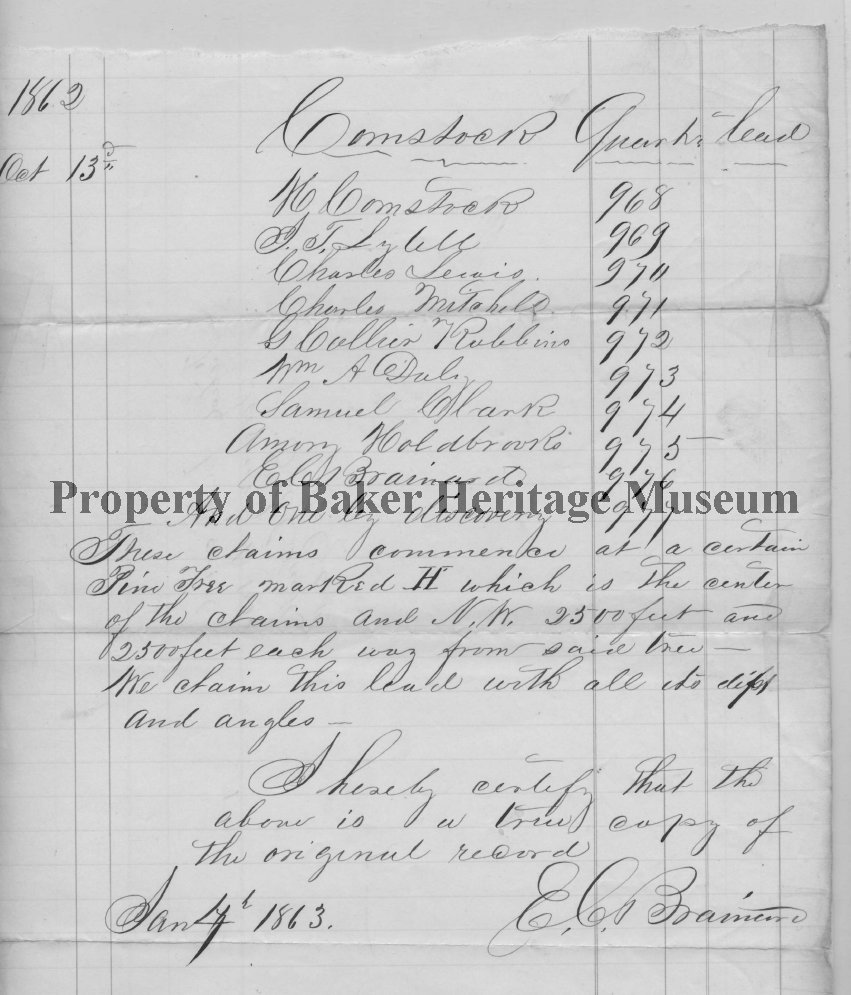 1862
Comstock Quartz lead
Oct 13d
H Comstock 968
S. T. Lytell 969
Charles Lewis. 970
Charles Mitchell. 971
G Collier Robbins 972
Wm A Daly 973
Samuel Clark 974
Amory Holdbrooks 975
E C Brainard 976
Property of Baker Heritage Museum
And one by discovery 977
These claims commence at a certain
Pine Tree marked H which is the center
of the claims and N.W. 2500 feet and
2500 feet each way from said tree —
We claim this lead with all its dips
and angles —
I hereby certify that the
above is a true copy of
the original record
Jan 7th 1863. E. C. Brainard